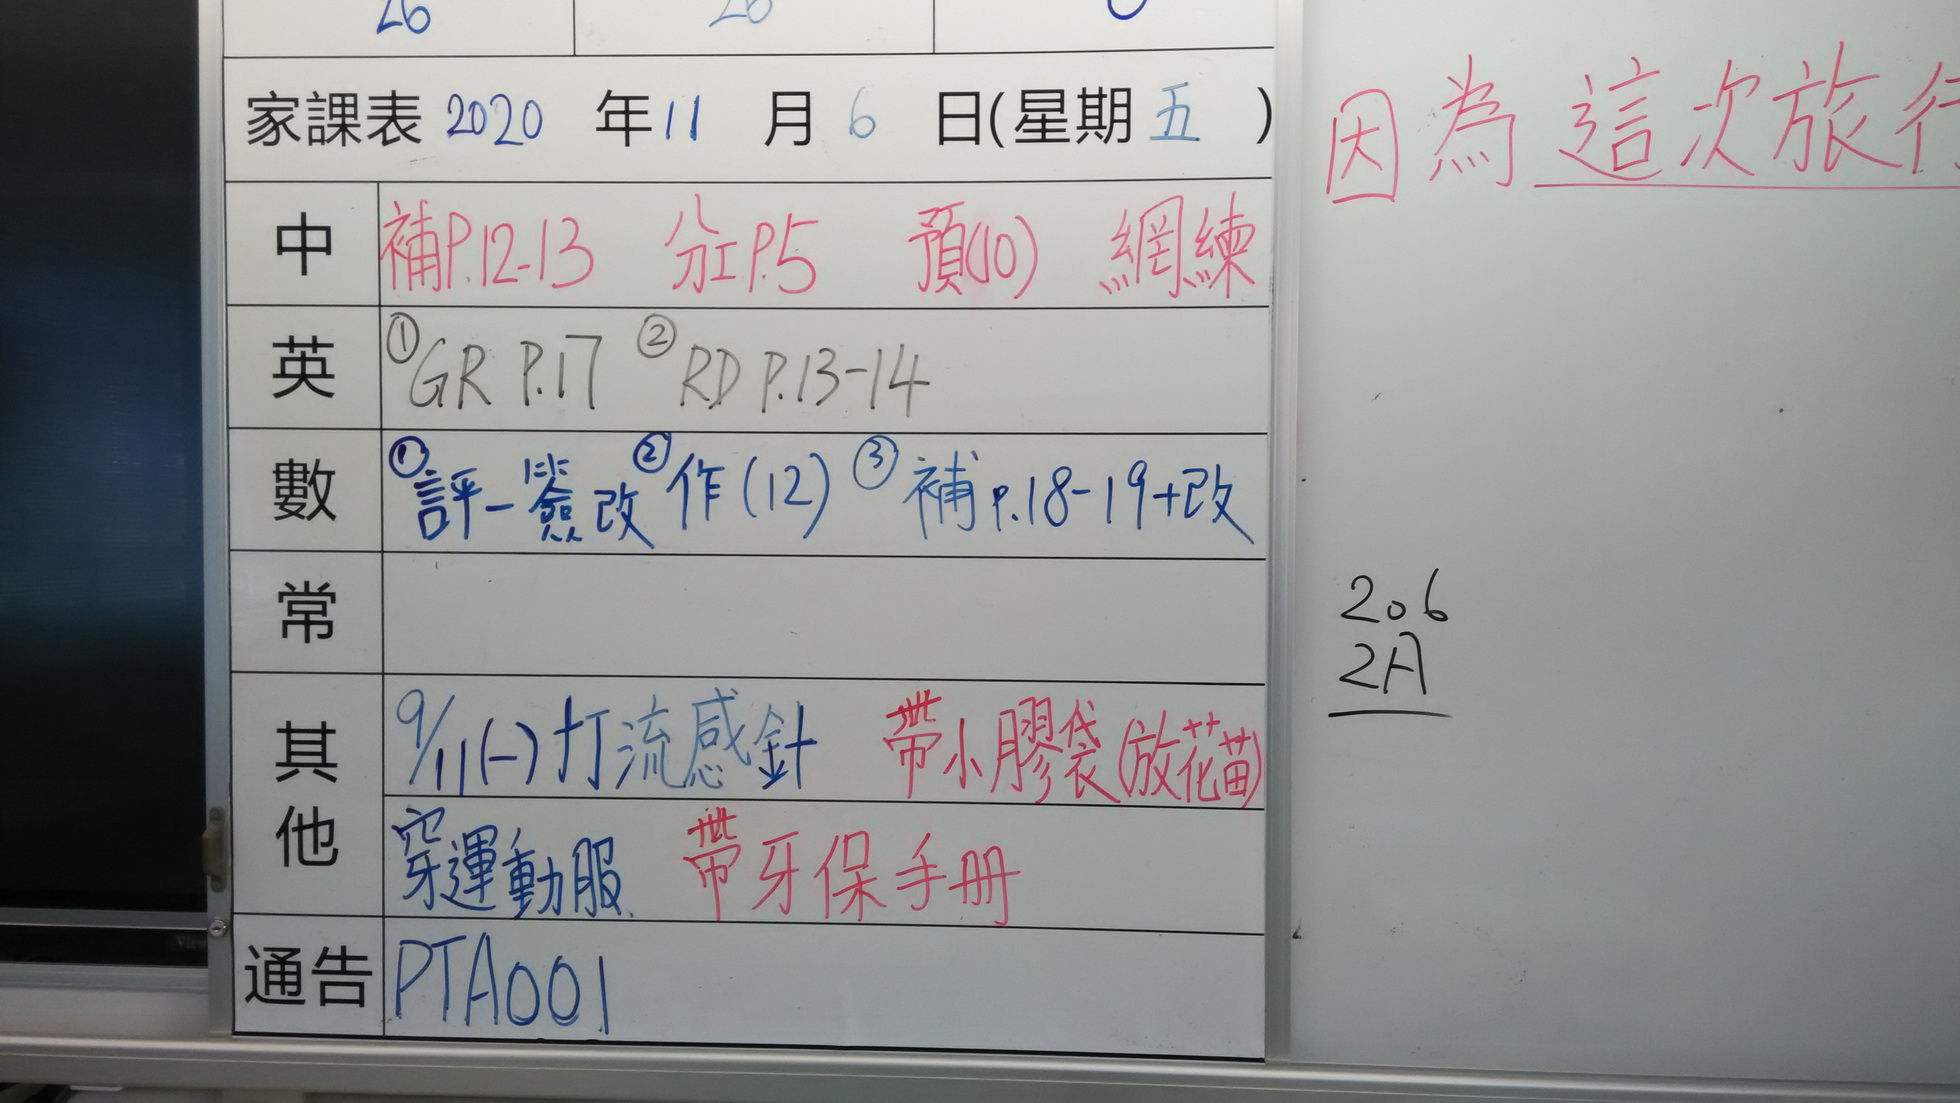 26 26 0
家課表 2020 年 11 月 6 日(星期 五 )
中 補P.12-13 分工P.5 預(10) 網練
英 ①GR P.17 ②RD P.13-14
數 ①評一簽改 ②作(12) ③補P.18-19+改
常
其他 9/11(一)打流感針 帶小膠袋(放花苗)
穿運動服 帶牙保手冊
通告 PTA001
因為這次旅行
206
2A